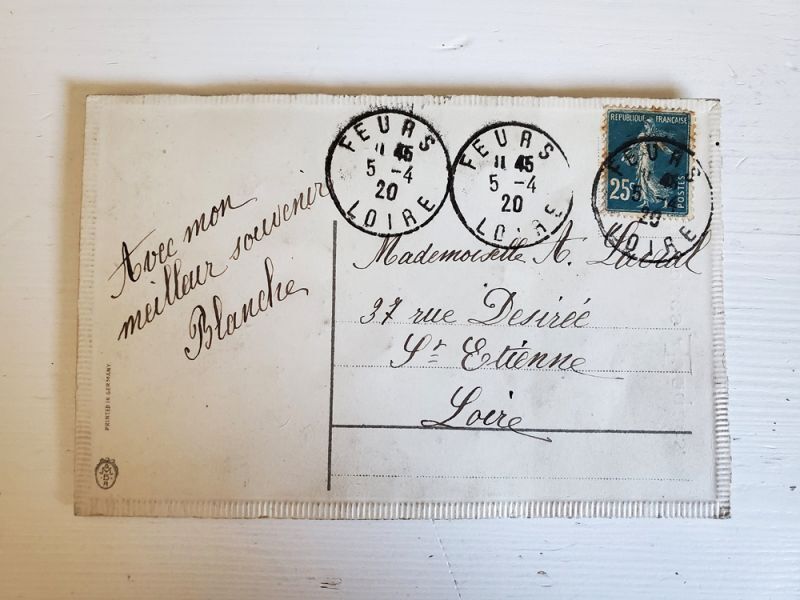 FEURS
11 45
5 - 4
20
LOIRE
FEURS
11 45
5 - 4
20
LOIRE
REPUBLIQUE FRANÇAISE
25c
POSTES
FEURS
5 - 4
20
LOIRE
Avec mon
meilleur souvenir
Blanche
Mademoiselle A. Laval
37 rue Desirée
St Etienne
Loire
PRINTED IN GERMANY